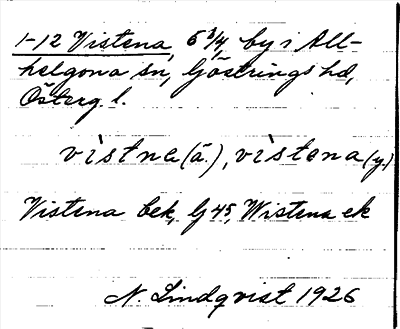 1-12 Vistena, 5 3/4, by i All-
helgona sn, Göstrings hd,
Österg. l.
vìstna (ä.), vìstena (y.)
Vistena bek, Gj 45, Wistena ek
N. Lindqvist 1926